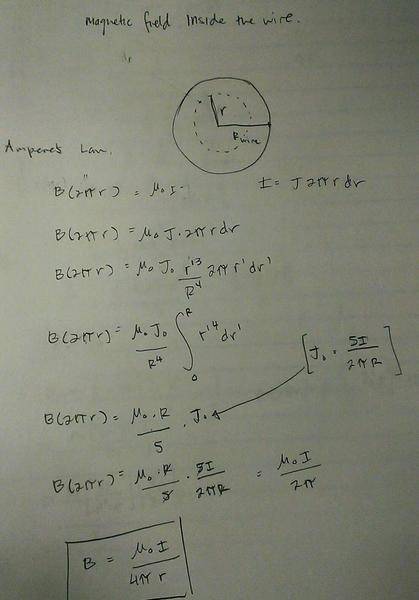 Magnetic field Inside the wire.
r
R wire
Ampere's Law.
B(2πr) = μ₀ I
I = J 2πr dr
B(2πr) = μ₀ J · 2πr dr
B(2πr) = μ₀ J₀ r'³/R⁴ 2π r' dr'
B(2πr) = μ₀ J₀/R⁴ ∫₀ᴿ r'⁴ dr'
[J₀ = 5I/2πR]
B(2πr) = μ₀ · R/5 · J₀
B(2πr) = μ₀ · R/5 · 5I/2πR = μ₀ I/2π
B = μ₀ I/4π r